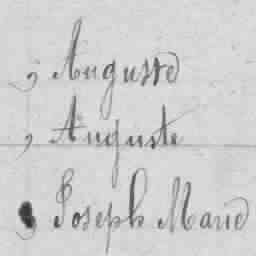 , Auguste
, Auguste
, Joseph Marie